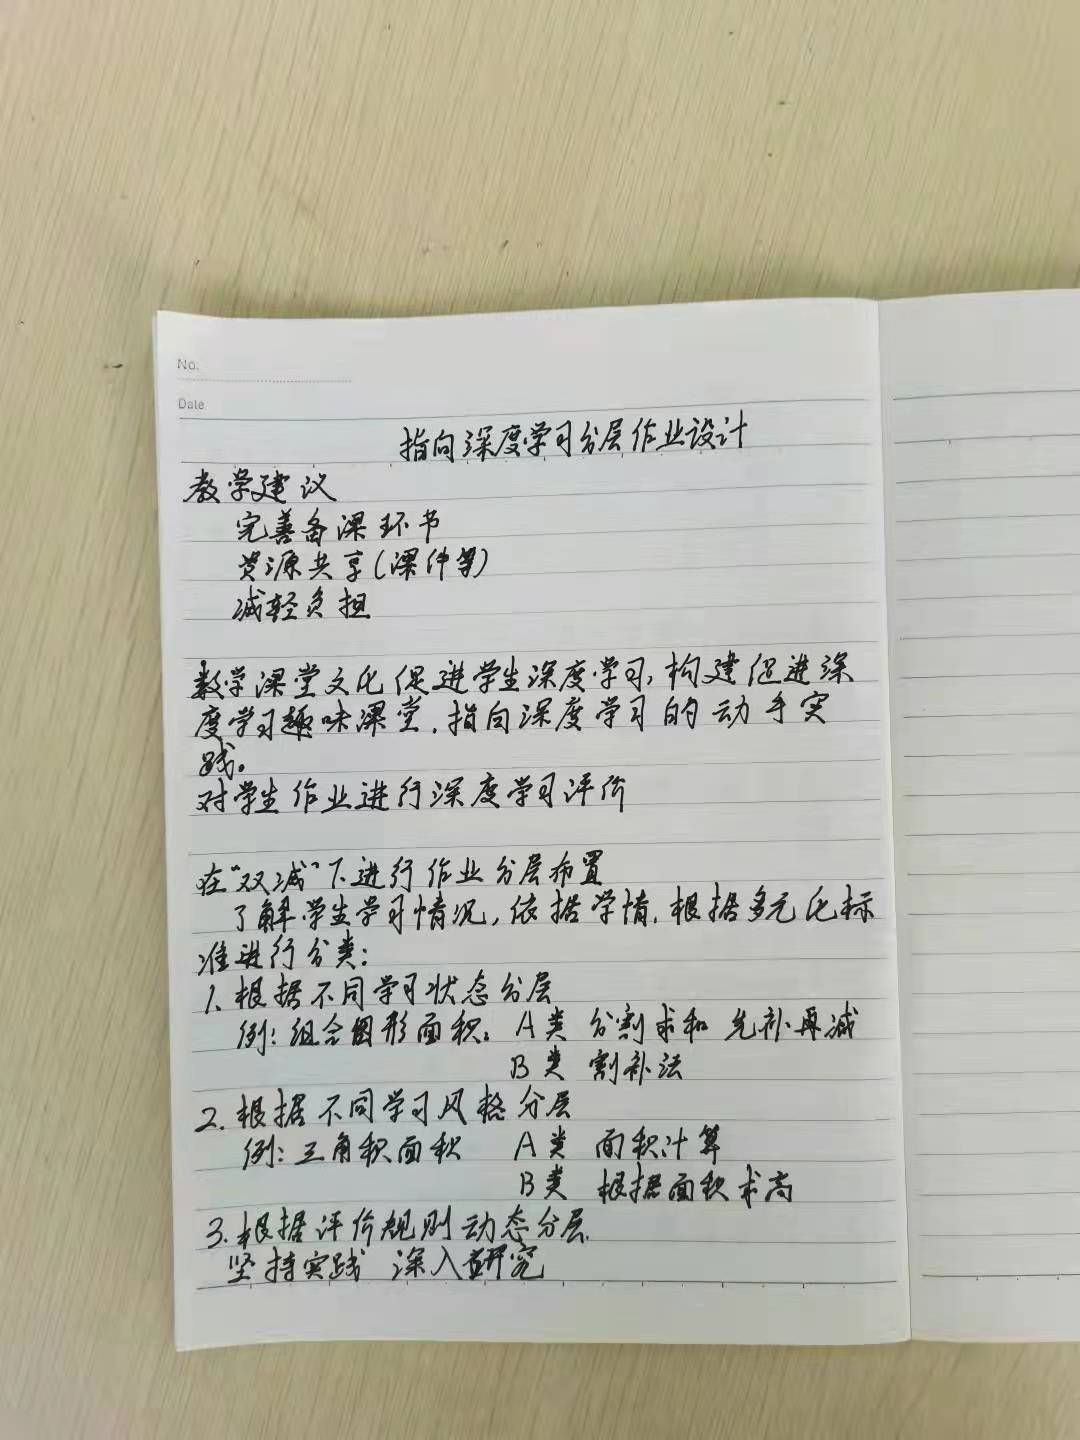 No.
Date
指向深度学习分层作业设计
教学建议
完善备课环节
资源共享(课件等)
减轻负担
数学课堂文化促进学生深度学习,构建促进深
度学习趣味课堂.指向深度学习的动手实
践。
对学生作业进行深度学习评价
在“双减”下进行作业分层布置
了解学生学习情况,依据学情.根据多元化标
准进行分类:
1.根据不同学习状态分层
例:组合图形面积: A类 分割求和 先补再减
B类 割补法
2.根据不同学习风格分层
例:三角积面积 A类 面积计算
B类 根据面积求高
3.根据评价规则动态分层.
坚持实践 深入研究